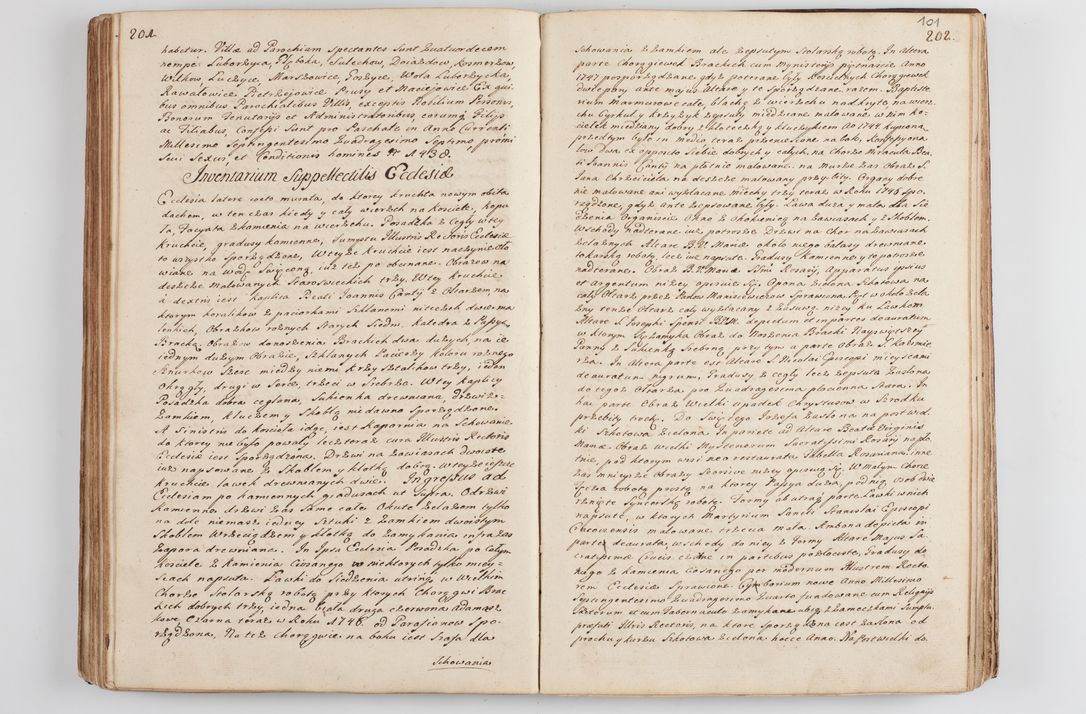 201.
habetur. Villæ ad Parochiam Spectantes Sunt quatuordecem
nempe: Luborzyca, Głęboka, Sulechow, Dojazdow, Kosmerzow,
Wilkow, Łuczyce, Marszowice, Goszyce, Wola Luborzycka,
Rawałowice, Pietrzejowice, Prusy et Maciejowice Ex qui-
bus omnibus Parochialibus Villis, exceptis Nobilium Personis,
Bonorum Tenutarijs et Administratoribus, eorumq Filijs
ac Filiabus, Confessi Sunt pro Paschate in Anno Currenti
Millesimo Septingentesimo Quadragesimo Septimo promi-
scui Sexus, et Conditionis homines
Inventarium Suppellectilis Ecclesiæ
Ecclesia latere coto murata, do ktorey kruchta nowym obita
dachem, w ten czas kiedy y cały wierzch na Kosciele, kopu
ła, Facyata z kamienia na wierzchu. Posadzka z Cegły w tey
kruchcie, gradusy kamienne, Sumptu Illustris Rectoris Ecclesiæ
to wszystko Sporządzone, W teyże kruchcie iest naczynie Oło
wiane na wodę Swięconą, iuż też po obunane. Obrazow na
deszcze malowanych Staroswieckich trzy. W tey kruchcie
à dextris jest Kaplica Beati Joannis Cantij z Ołtarzem na
ktorym koralikow z paciorkami Szklanemi niteczek dwie ma
lenkich, Obrazkow roznych Starych Siedm, Katedra z Passyą
Bracką. Obrazow do noszenia Brackich dwa dużych, na ie
iednym dużym Obrazie, Szklanych Paciorzy koloru roznego
Sznurkow Szesc miedzy niemi krzyształikow trzy, ieden
Okrągły, drugi w Serce, trzeci w Srebrze. W tey kaplicy
Posadzka dobra ceglana, Sukienka drewniana, drzwi z
Zamkiem, kluczem y Skoblą niedawno Sporządzone.
A Sinistris do kościoła idąc, iest kapornia na Schowanie
do ktorey nie było powały, lecz teraz cura Illustris Rectoris
Ecclesiæ iest Sporządzona. Drzwi na zawiasach dwoiste
iuż napsowane z Skoblem y kłotką dobrą. W teyże ieszcze
kruchcie lawek drewnianych dwie. Ingressus ad
Ecclesiam po kamiennych gradusach ut Supra. Odrzwi
kamienne, drzwi zas Same całe Okute żelazem tylko
na dole niemasz iedney Sztuki z Zamkiem dwoistym
Skoblem Wrzeciądzem y kłotką do zamykania infra zas
zapora drewniana. In Ipsa Ecclesia Posadzka po całym
kosciele z kamienia Ciosanego w niektorych tylko miey-
scach napsuta. Ławki do Siedzenia utrinq w Wielkim
Chorze Stolarską robotą przy ktorych Chorągwi Brac
kich dobrych trzy, iedna biała druga czerwona Adamasz
kowe Czarna teraz w Roku 1746. od Parafianow Spo-
rządzona. Na też chorągwie na boku iest Szafa dla
Schowania

101
202.
Schowania z Zamkiem ale zepsutym Stolarską robotą. In altera
parte Chorągiewek Brackich cum Mysterijs piętnascie Anno
1747 posporządzane, gdyż poterane były Koscielnych Chorągiewek
Dwie pary ante majus Altare y te Sporządzone razem. Baptiste-
rium Marmurowe całe, blachą z wierzchu nadkryte, na wierz-
chu Cyrkuł y krzyżyk zepsuty miedziane malowane, w nim ko-
ciełek miedziany dobry z kłoteczką y kluczykiem Ao 1744. kupiona
przedtym było in medio, teraz przeniesione na bok, Konfessyona-
łow Dwa ex opposito Sobie dobrych y całych, na Chorze Miracula Bea
ti Joannis Cantij na płotnie malowane. na Murze zas Obraz S.
Jana Chrzciciela na deszcze malowany przybity. Organy dobre
nie malowane ani wyzłacane miechy trzy teraz w Roku 1748 Spo-
rządzone, gdyż ante zepsowane były. Ława duza y mała dla Sie
dzenia Organiscie. Okno z Okiennicą na zawiasach y z Skoblem.
Wschody nadterane iuż potrosze Drzwi na Chor na zawiasach
żelaznych Altare B.V. Mariæ około niego balasy drewniane
tokarską robotą, lecz iuż napsute. Gradusy kamienne y te potrosze
nadterane. Obraz B.V. Mariæ Ssmi Rosarij, Apparatus ipsius
et argentum niżey opisuie Się. Opona zielona Szkotowa na
cały Ołtarz przez Panow Maniszewiczow Sprawiona. Pręt w około żela
zny tenże Ołtarz cały wyzłacany z Zasuwą niżey ku Ławkom.
Altare S. Josephi Sponsi B.V.M. depictum et in partes deauratum
w ktorym Się zamyka Obraz do Noszenia Bracki Nayswiętszey
Panny z Sukienką Srebrną przy tym a parte Obraz S. Kazimie
rza. In Altera parte est Altare S. Nicolai Episcopi mieyscami
deauratum, nigrum, Gradusy z cegły lecz zepsute Zasłona
do tegoż Ołtarza, pro Quadragesima płocienna Stara. In
hac parte Obraz Wielki upadek Chrystusow w Srodku
przebity trochę. Do Swiętego Jozefa Zasłona na post wiel
ki Szkotowa zielona. In pariete ad Altare Beatæ Virginis
Mariæ. Obraz wielki Mysteriorum Sacratissimi Rosarij na pło
tnie, pod ktorym wisi neo restaurata Tabella Rosariana, inne
zas mnieysze Obrazy Seorsive niżey opisuią Się. W Małym Chorze
Tęcza robotą prostą na ktorey Passya duża, pod nią Osob dwie
rznięte Sycerską robotą. Formy ab utraq parte Ławki w nich
napsute, w ktorych Martyrium Sancti Stanislai Episcopi
Cracoviensis malowane trzecia mała. Ambona depicta in
partes deaurata, wschody do niey z Formy Altare Majus Sa-
cratissimæ Crucis cædae in partibus pozłociste, Gradusy do
niego z kamienia Ciosanego per modernum Illustrem Recto
rem Ecclesiæ Sprawione. Cymborium nowe Anno Millesimo
Septingentesimo Quadragesimo Quarto fundowane cum Religijs
Sanctorum et cum Tabernaculo zamykane ubiq z Zameczkami Sumptu
præfati Illris Rectoris, na ktore Sporządzona iest zasłona od
prochu y kurzu Szkotowa zielona hocce Anno. Na Post wielki do